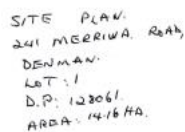 SITE PLAN.
241 MERRIWA ROAD,
DENMAN.
LOT: 1
D.P: 128061.
AREA: 14.16 HA.